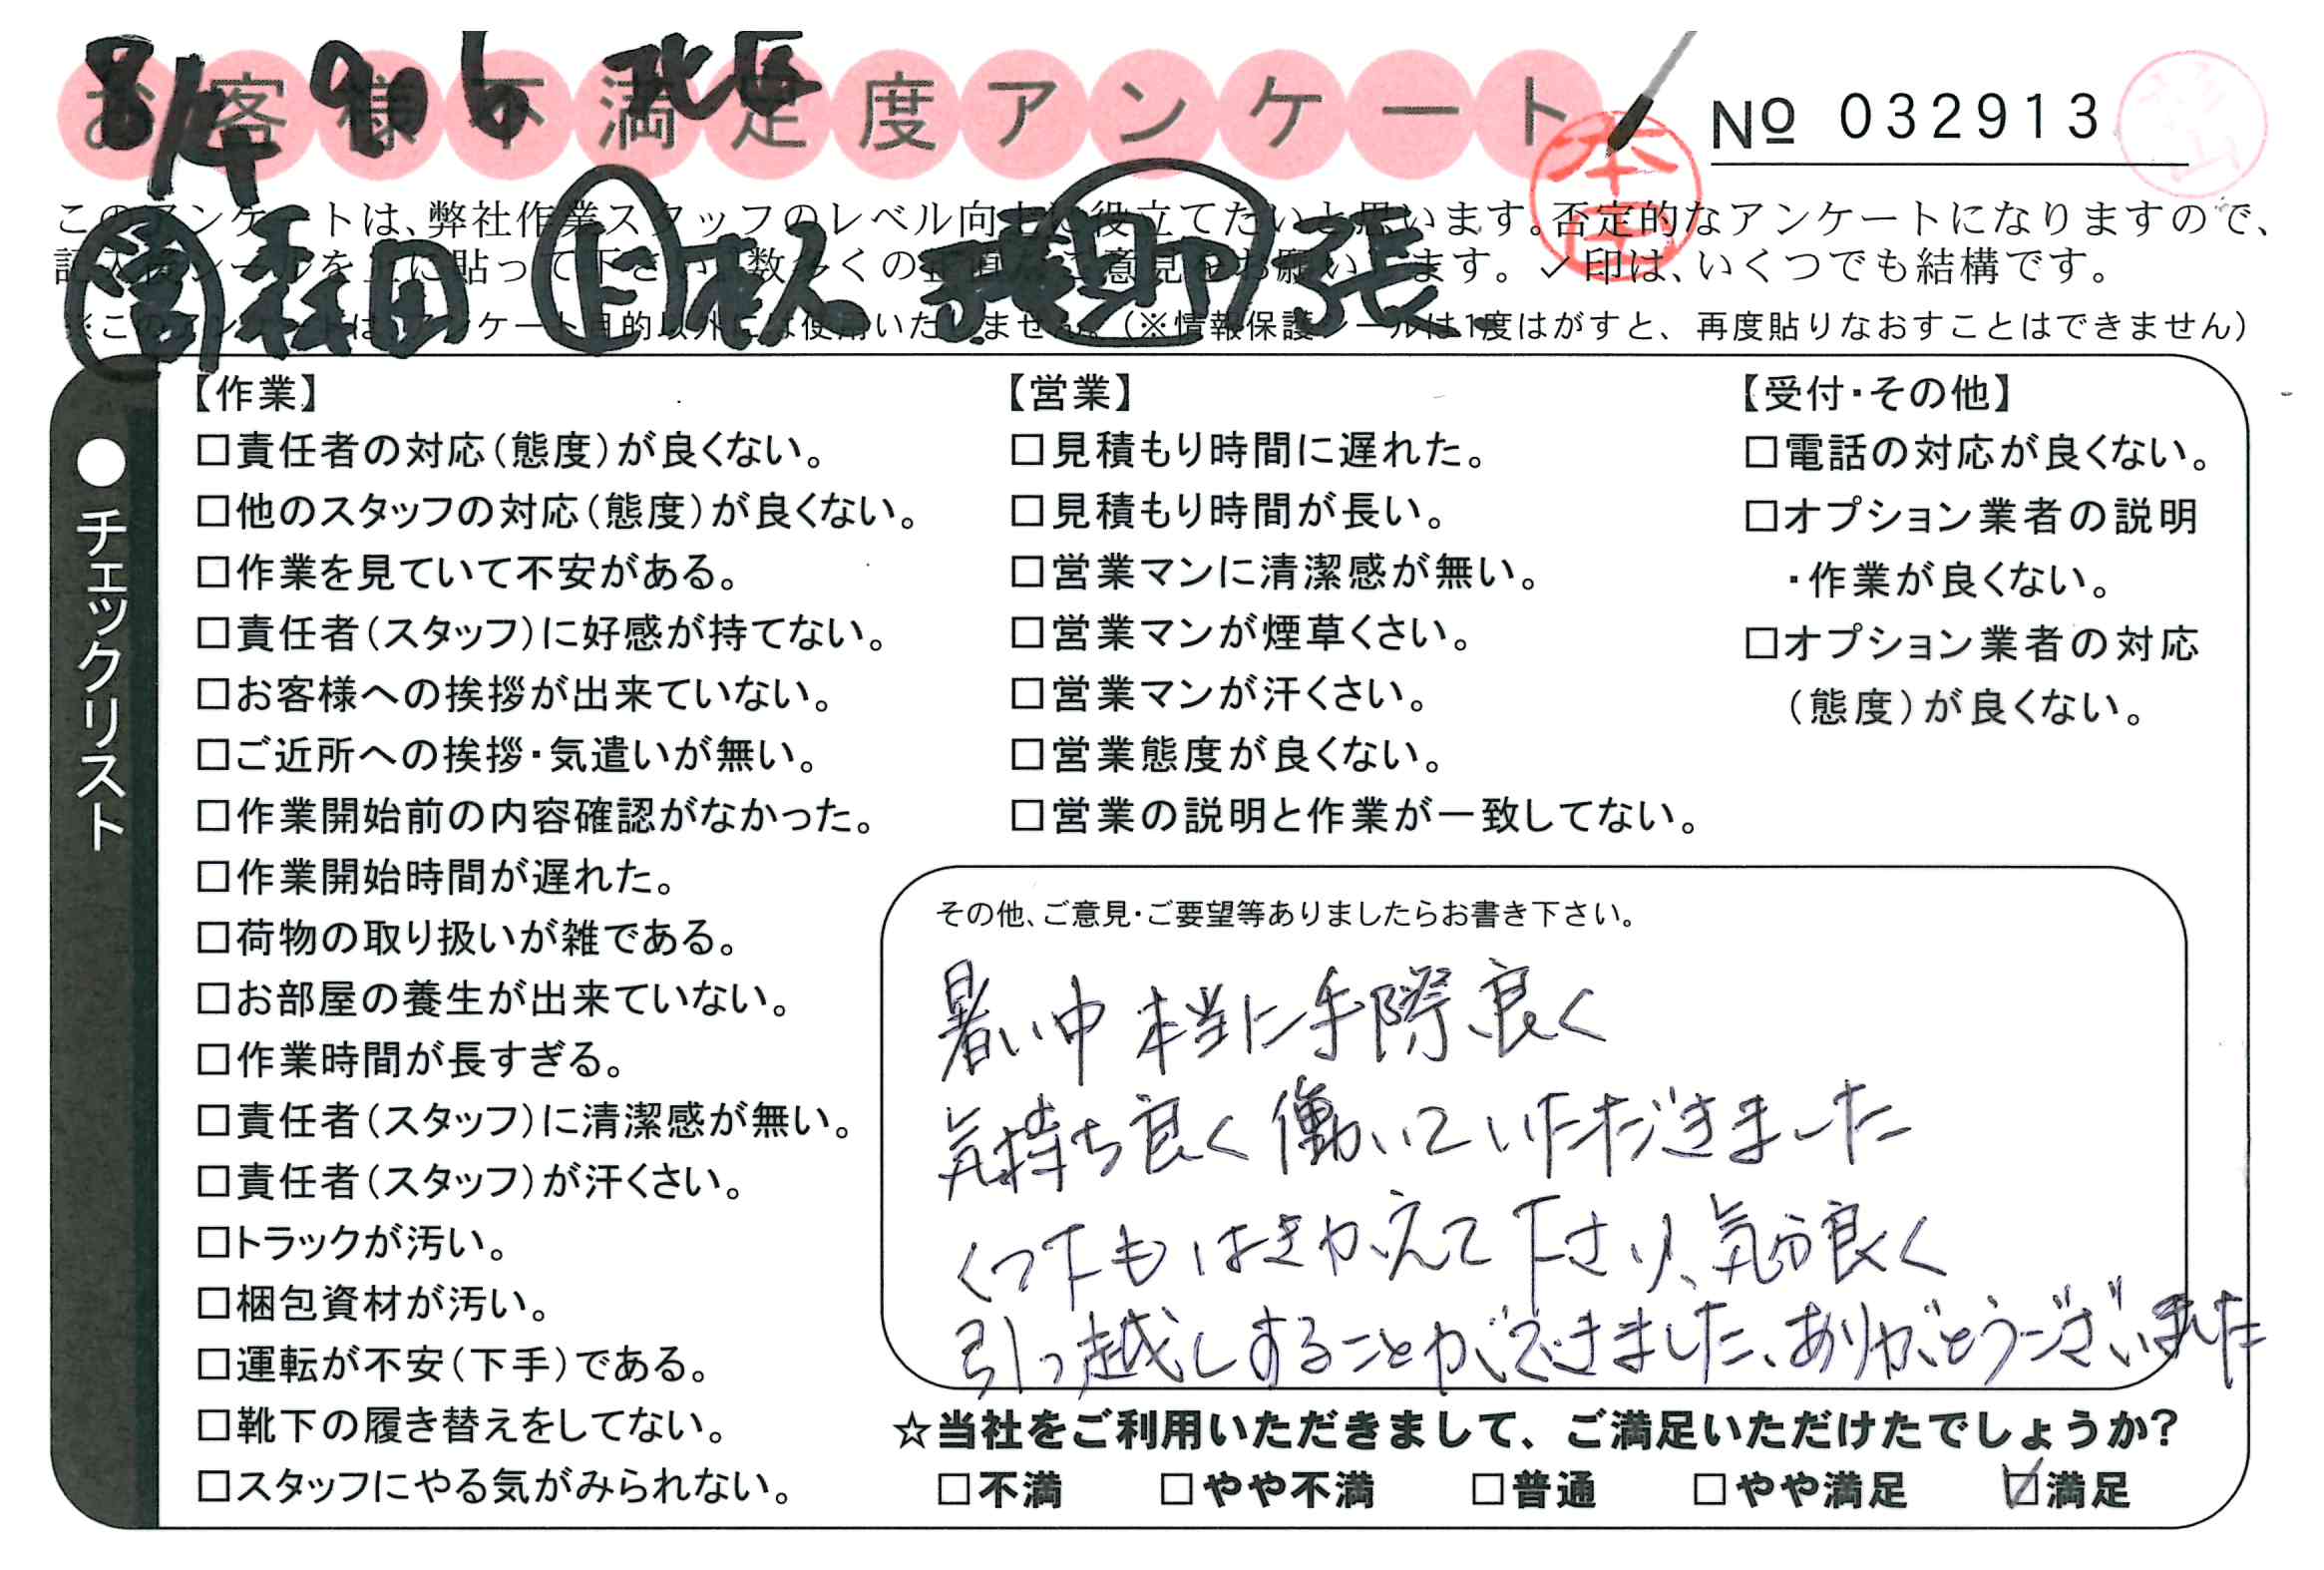 8/4 906 北区
お客様不満足度アンケート
本田
№ 032913
このアンケートは、弊社作業スタッフのレベル向上に役立てたいと思います。否定的なアンケートになりますので、
記入後シールを上に貼って下さい。数多くの正直なご意見をお願いします。✓印は、いくつでも結構です。
営 森田 日 本人 張
※このアンケートは、アンケート目的以外には使用いたしません。(※情報保護シールは1度はがすと、再度貼りなおすことはできません)
●チェックリスト
【作業】
□責任者の対応(態度)が良くない。
□他のスタッフの対応(態度)が良くない。
□作業を見ていて不安がある。
□責任者(スタッフ)に好感が持てない。
□お客様への挨拶が出来ていない。
□ご近所への挨拶・気遣いが無い。
□作業開始前の内容確認がなかった。
□作業開始時間が遅れた。
□荷物の取り扱いが雑である。
□お部屋の養生が出来ていない。
□作業時間が長すぎる。
□責任者(スタッフ)に清潔感が無い。
□責任者(スタッフ)が汗くさい。
□トラックが汚い。
□梱包資材が汚い。
□運転が不安(下手)である。
□靴下の履き替えをしてない。
□スタッフにやる気がみられない。
【営業】
□見積もり時間に遅れた。
□見積もり時間が長い。
□営業マンに清潔感が無い。
□営業マンが煙草くさい。
□営業マンが汗くさい。
□営業態度が良くない。
□営業の説明と作業が一致してない。
【受付・その他】
□電話の対応が良くない。
□オプション業者の説明
・作業が良くない。
□オプション業者の対応
(態度)が良くない。
その他、ご意見・ご要望等ありましたらお書き下さい。
暑い中 本当に手際良く
気持ち良く働いていただきました
くつ下もはきかえて下さり、気分良く
引っ越しすることができました、ありがとうございました
☆当社をご利用いただきまして、ご満足いただけたでしょうか?
□不満 □やや不満 □普通 □やや満足 ☑満足